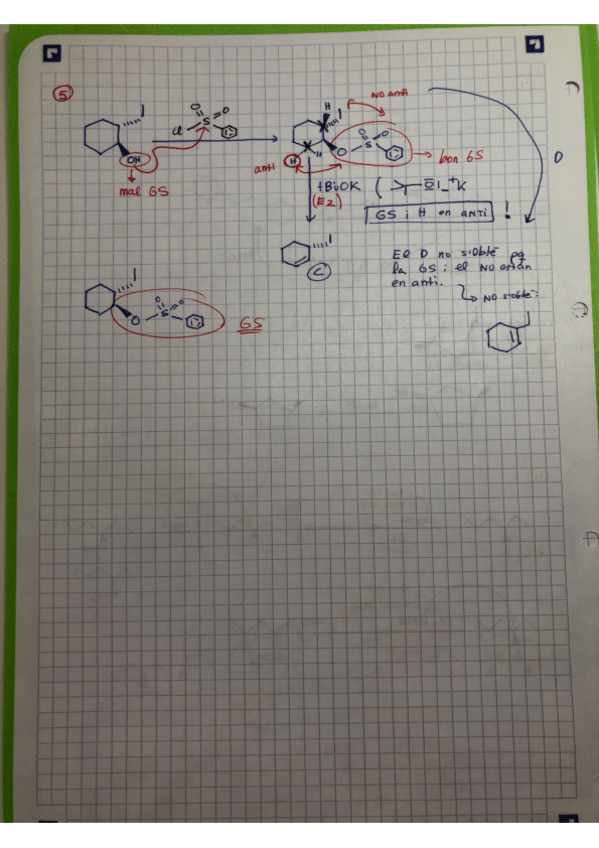 5
O O
Cl S
OH
mal GS
H
NO anti
O O
O S
H H
anti
bon GS
D
tBuOK ( O - +K
(E2)
GS i H en ANTI !
C
El D no s'obté pq
la GS i el NO están
en anti.
NO s'obté:
O O
O S
GS